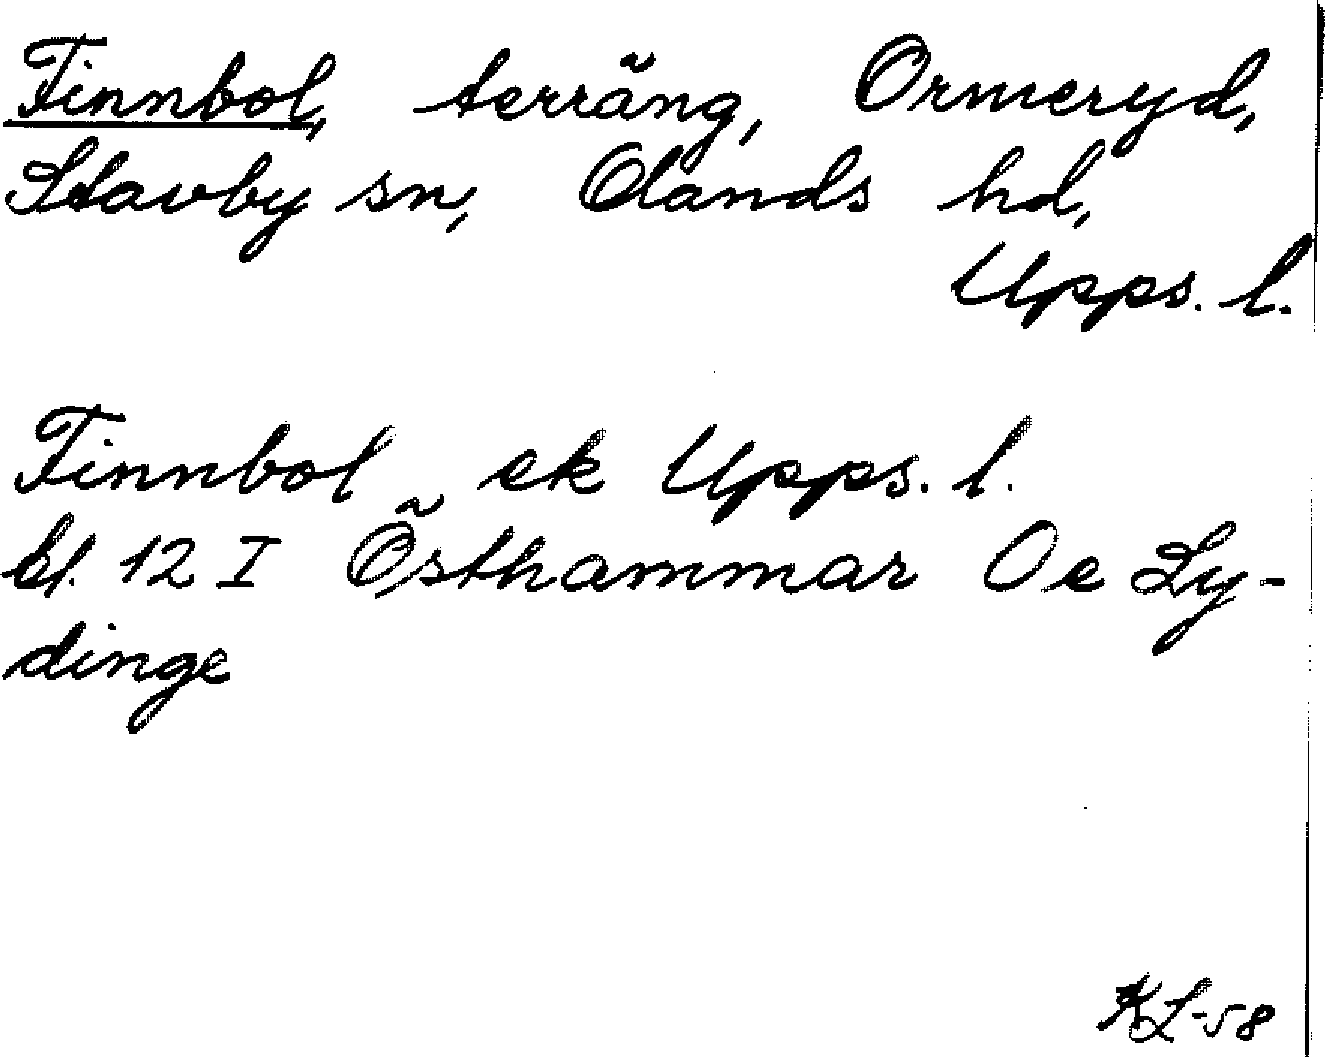 Finnbol, terräng, Ormeryd,
Stavby sn, Olands hd,
Upps. l.
Finnbol ek Upps. l.
bl. 12 I Östhammar Oe Ly-
dinge
KL-58